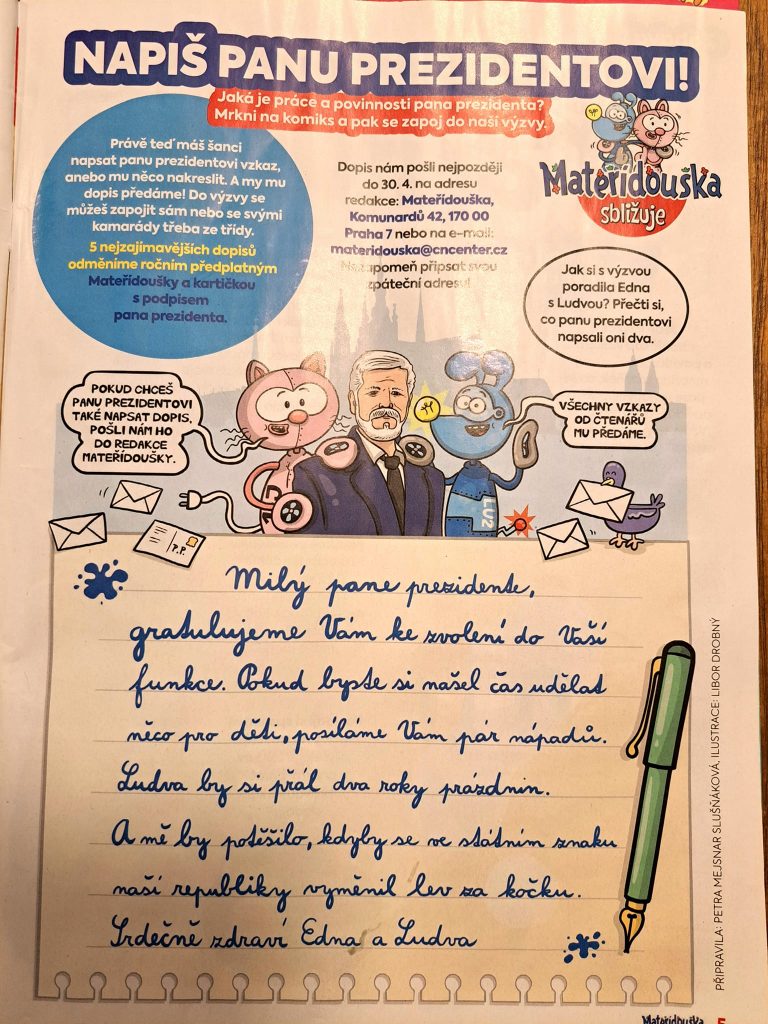 NAPIŠ PANU PREZIDENTOVI!
Jaká je práce a povinnosti pana prezidenta?
Mrkni na komiks a pak se zapoj do naší výzvy.
Právě teď máš šanci
napsat panu prezidentovi vzkaz,
anebo mu něco nakreslit. A my mu
dopis předáme! Do výzvy se
můžeš zapojit sám nebo se svými
kamarády třeba ze třídy.
5 nejzajímavějších dopisů
odměníme ročním předplatným
Mateřídoušky a kartičkou
s podpisem
pana prezidenta.
Dopis nám pošli nejpozději
do 30. 4. na adresu
redakce: Mateřídouška,
Komunardů 42, 170 00
Praha 7 nebo na e-mail:
materidouska@cncenter.cz
Nezapomeň připsat svou
zpáteční adresu!
Mateřídouška
sbližuje
Jak si s výzvou
poradila Edna
s Ludvou? Přečti si,
co panu prezidentovi
napsali oni dva.
POKUD CHCEŠ
PANU PREZIDENTOVI
TAKÉ NAPSAT DOPIS,
POŠLI NÁM HO
DO REDAKCE
MATEŘÍDOUŠKY.
VŠECHNY VZKAZY
OD ČTENÁŘŮ
MU PŘEDÁME.
LU2
P.P.
Milý pane prezidente,
gratulujeme Vám ke zvolení do Vaší
funkce. Pokud byste si našel čas udělat
něco pro děti, posíláme Vám pár nápadů.
Ludva by si přál dva roky prázdnin.
A mě by potěšilo, kdyby se ve státním znaku
naší republiky vyměnil lev za kočku.
Srdečně zdraví Edna a Ludva
PŘIPRAVILA: PETRA MEJSNAR SLUŠŇÁKOVÁ, ILUSTRACE: LIBOR DROBNÝ
Mateřídouška